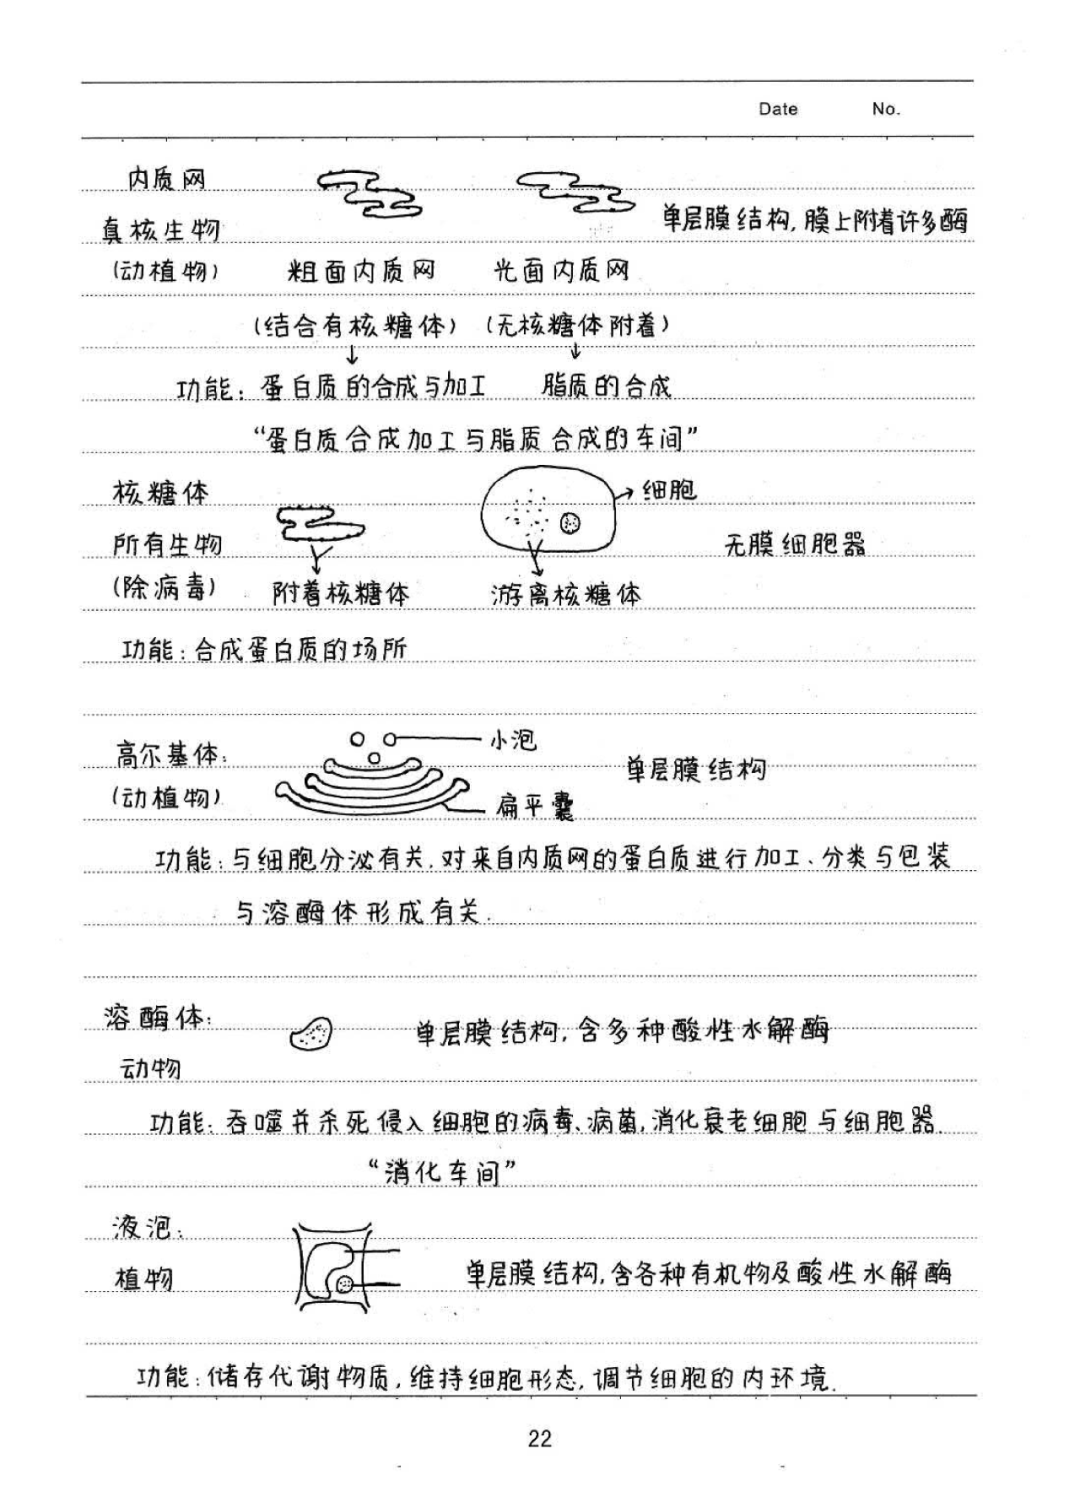 Date No.
内质网
真核生物 单层膜结构,膜上附着许多酶
(动植物) 粗面内质网 光面内质网
(结合有核糖体) (无核糖体附着)
功能: 蛋白质的合成与加工 脂质的合成
“蛋白质合成加工与脂质合成的车间”
核糖体 细胞
所有生物 无膜细胞器
(除病毒) 附着核糖体 游离核糖体
功能:合成蛋白质的场所
小泡
高尔基体: 单层膜结构
(动植物) 扁平囊
功能:与细胞分泌有关.对来自内质网的蛋白质进行加工、分类与包装
与溶酶体形成有关.
溶酶体: 单层膜结构,含多种酸性水解酶
动物
功能:吞噬并杀死侵入细胞的病毒、病菌,消化衰老细胞与细胞器.
“消化车间”
液泡:
植物 单层膜结构,含各种有机物及酸性水解酶
功能:储存代谢物质,维持细胞形态,调节细胞的内环境.
22